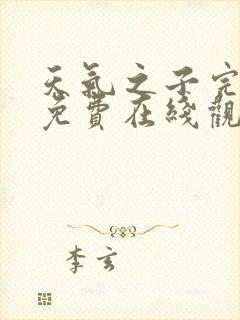 天氣之子完
免費在綫觀
李玄